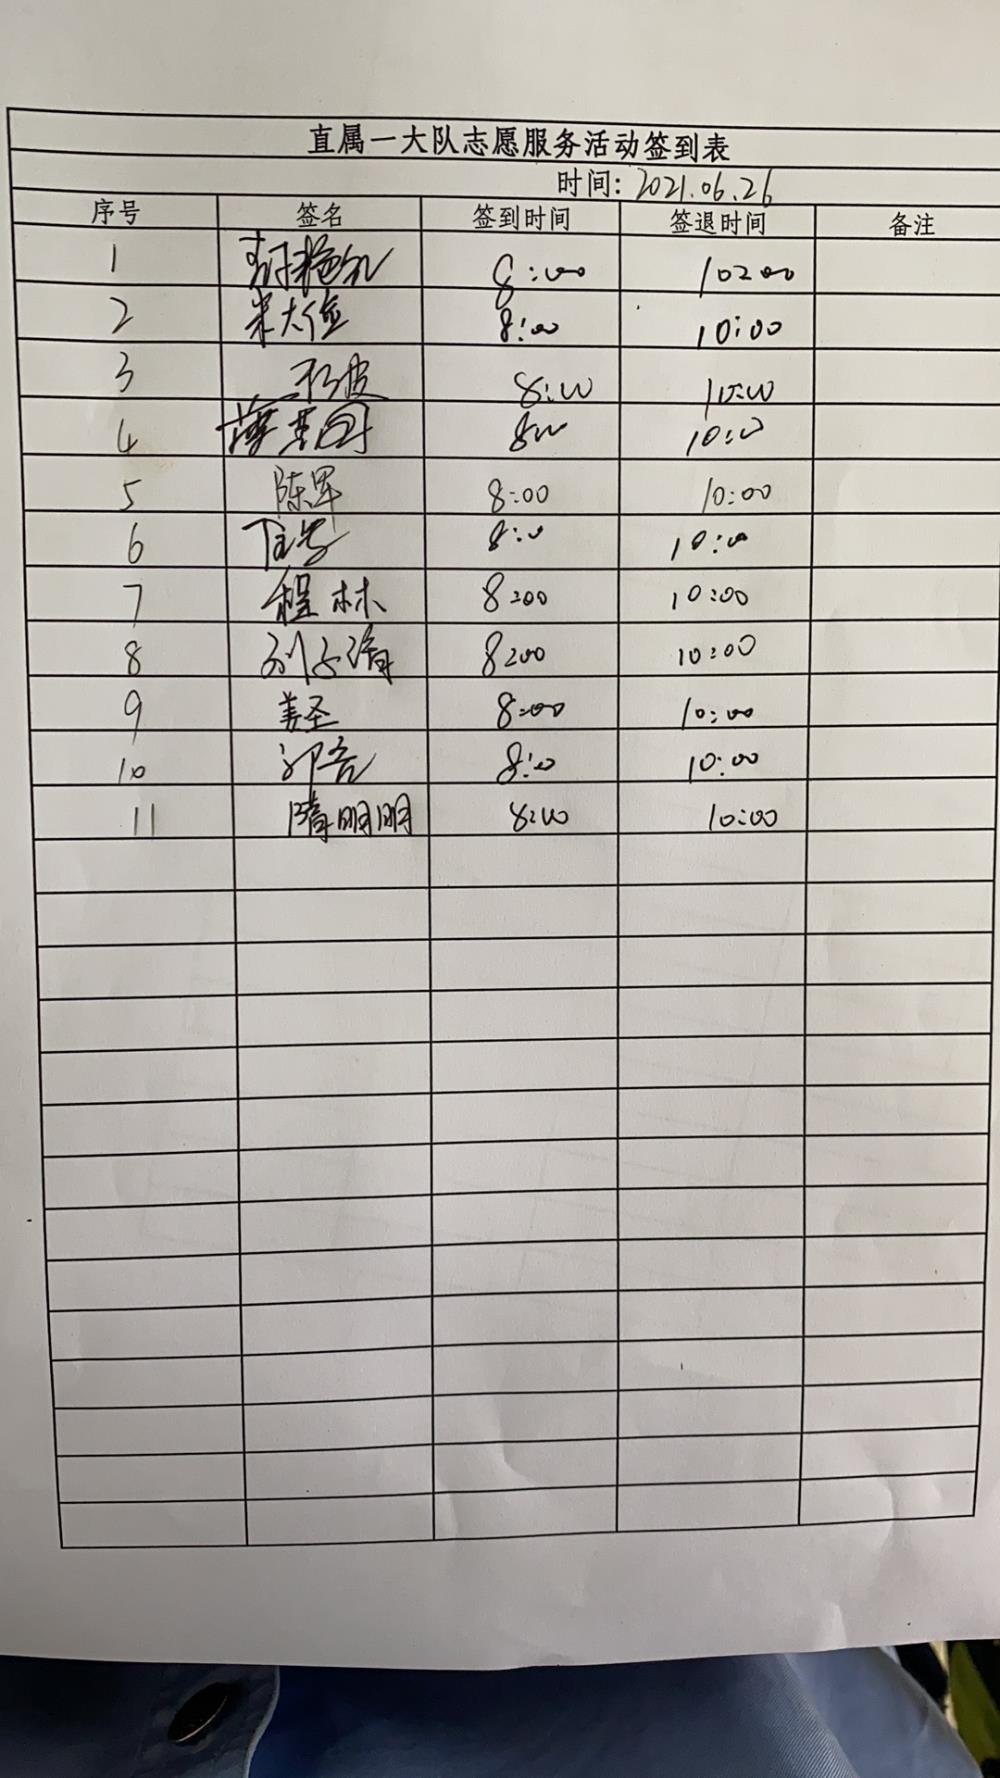 直属一大队志愿服务活动签到表
时间: 2021.06.26
序号 签名 签到时间 签退时间 备注
1 8:00 10:00
2 8:00 10:00
3 8:00 10:00
4 800 10:00
5 陈军 8:00 10:00
6 8:00 10:00
7 程林 8:00 10:00
8 8:00 10:00
9 姜圣 8:00 10:00
10 8:00 10:00
11 隋明明 8:00 10:00